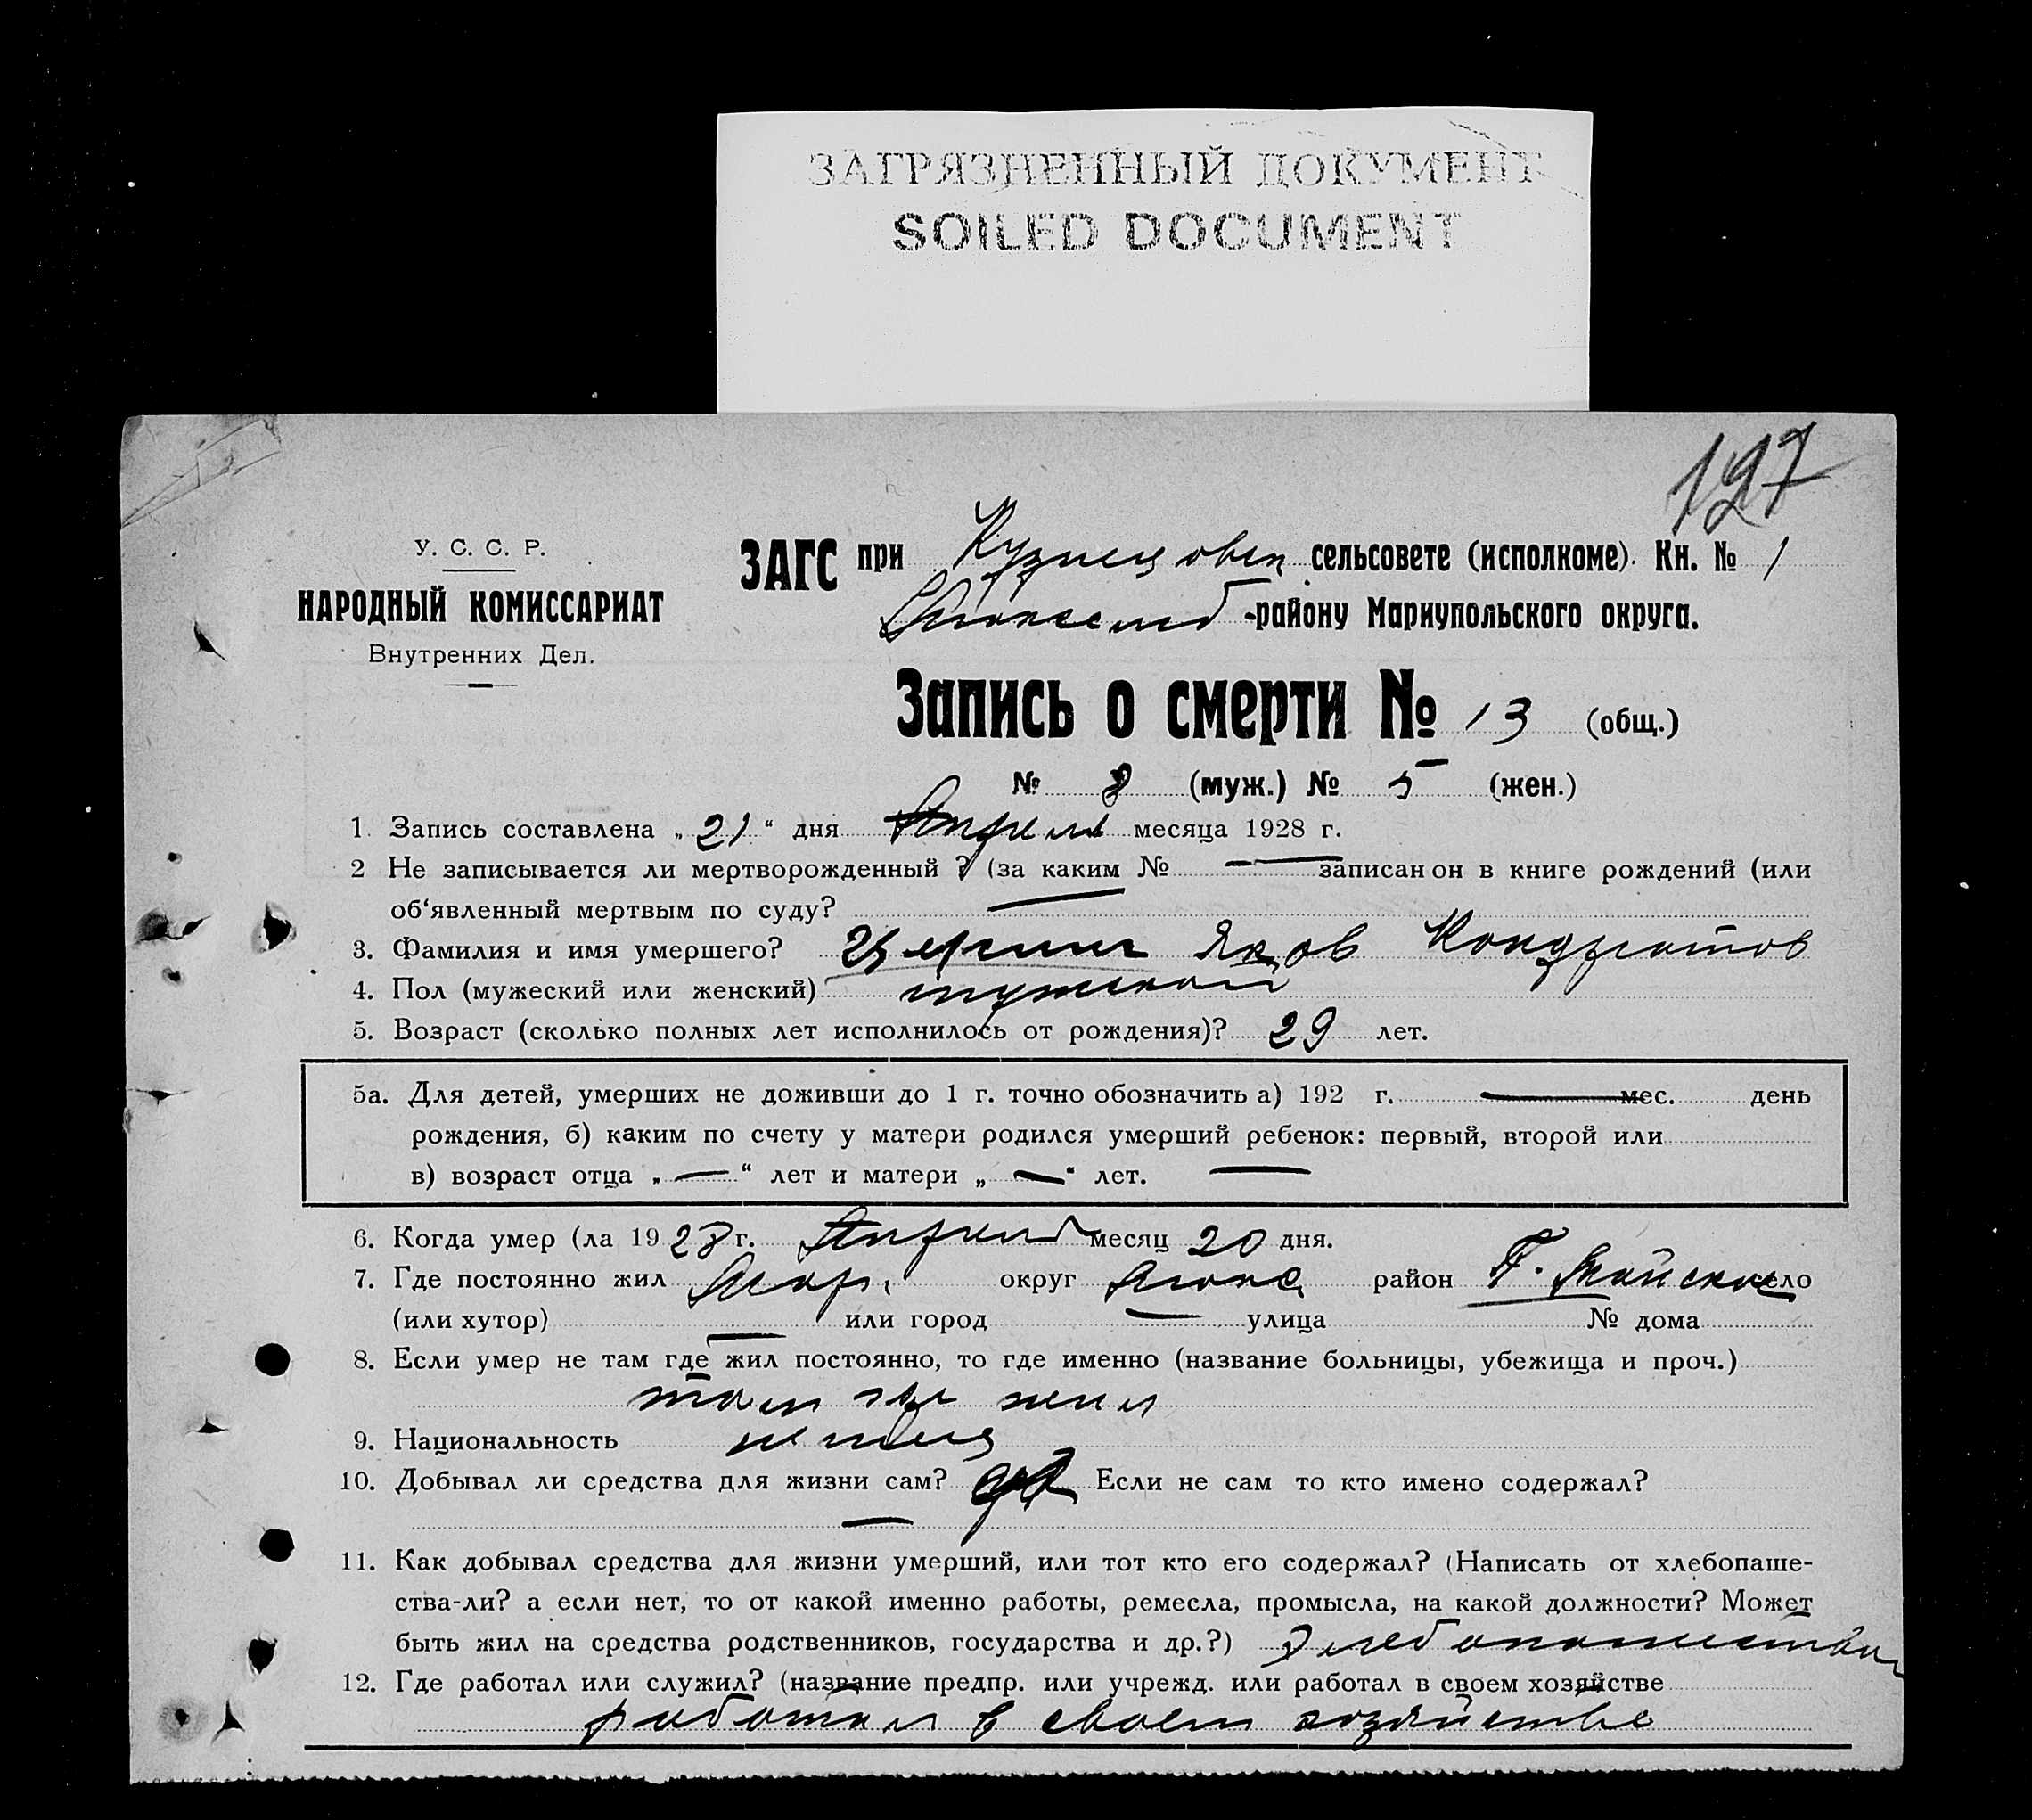 ЗАГРЯЗНЕННЫЙ ДОКУМЕНТ
SOILED DOCUMENT
197
У. С. С. Р.
НАРОДНЫЙ КОМИССАРИАТ
Внутренних Дел.
ЗАГС при Кузнецовск сельсовете (исполкоме). Кн. № 1
-району Мариупольского округа.
Запись о смерти № 13 (общ.)
№ 8 (муж.) № 5 (жен.)
1. Запись составлена „21“ дня Апреля месяца 1928 г.
2 Не записывается ли мертворожденный ? (за каким № — записан он в книге рождений (или
об‘явленный мертвым по суду? —
3. Фамилия и имя умершего? Яков Кондратов
4. Пол (мужеский или женский) мужской
5. Возраст (сколько полных лет исполнилось от рождения)? 29 лет.
5а. Для детей, умерших не доживши до 1 г. точно обозначить а) 192 г. — мес. день
рождения, б) каким по счету у матери родился умерший ребенок: первый, второй или
в) возраст отца „—“ лет и матери „—“ лет. —
6. Когда умер (ла 1928 г. Апреля месяц 20 дня.
7. Где постоянно жил Мар. округ район Майское село
(или хутор) — или город — улица № дома
8. Если умер не там где жил постоянно, то где именно (название больницы, убежища и проч.)
там где жил
9. Национальность немец
10. Добывал ли средства для жизни сам? да Если не сам то кто имено содержал?
—
11. Как добывал средства для жизни умерший, или тот кто его содержал? (Написать от хлебопаше-
ства-ли? а если нет, то от какой именно работы, ремесла, промысла, на какой должности? Может
быть жил на средства родственников, государства и др.?) Хлебопашеством
12. Где работал или служил? (название предпр. или учрежд. или работал в своем хозяйстве
работал в своем хозяйстве